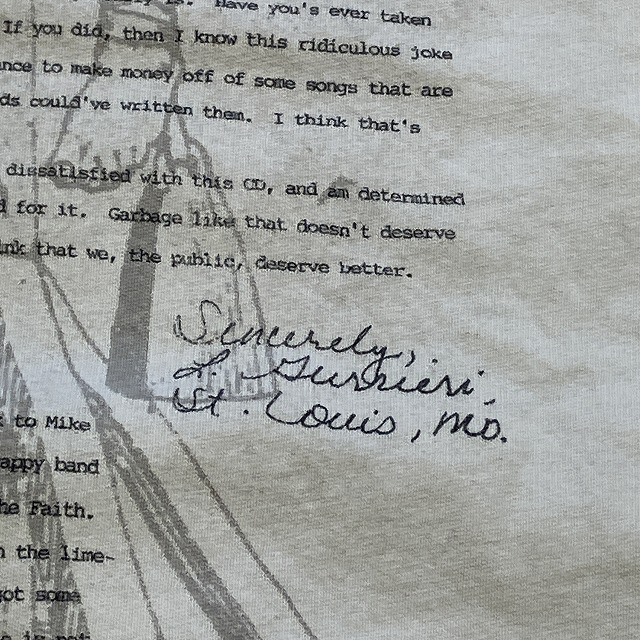 Have you's ever taken
If you did, then I know this ridiculous joke
to make money off of some songs that are
could've written them. I think that's
dissatisfied with this CD, and am determined
for it. Garbage like that doesn't deserve
that we, the public, deserve better.
Sincerely,
L. Gurrieri
St. Louis, Mo.
to Mike
band
Faith.
the lime-
some
is not